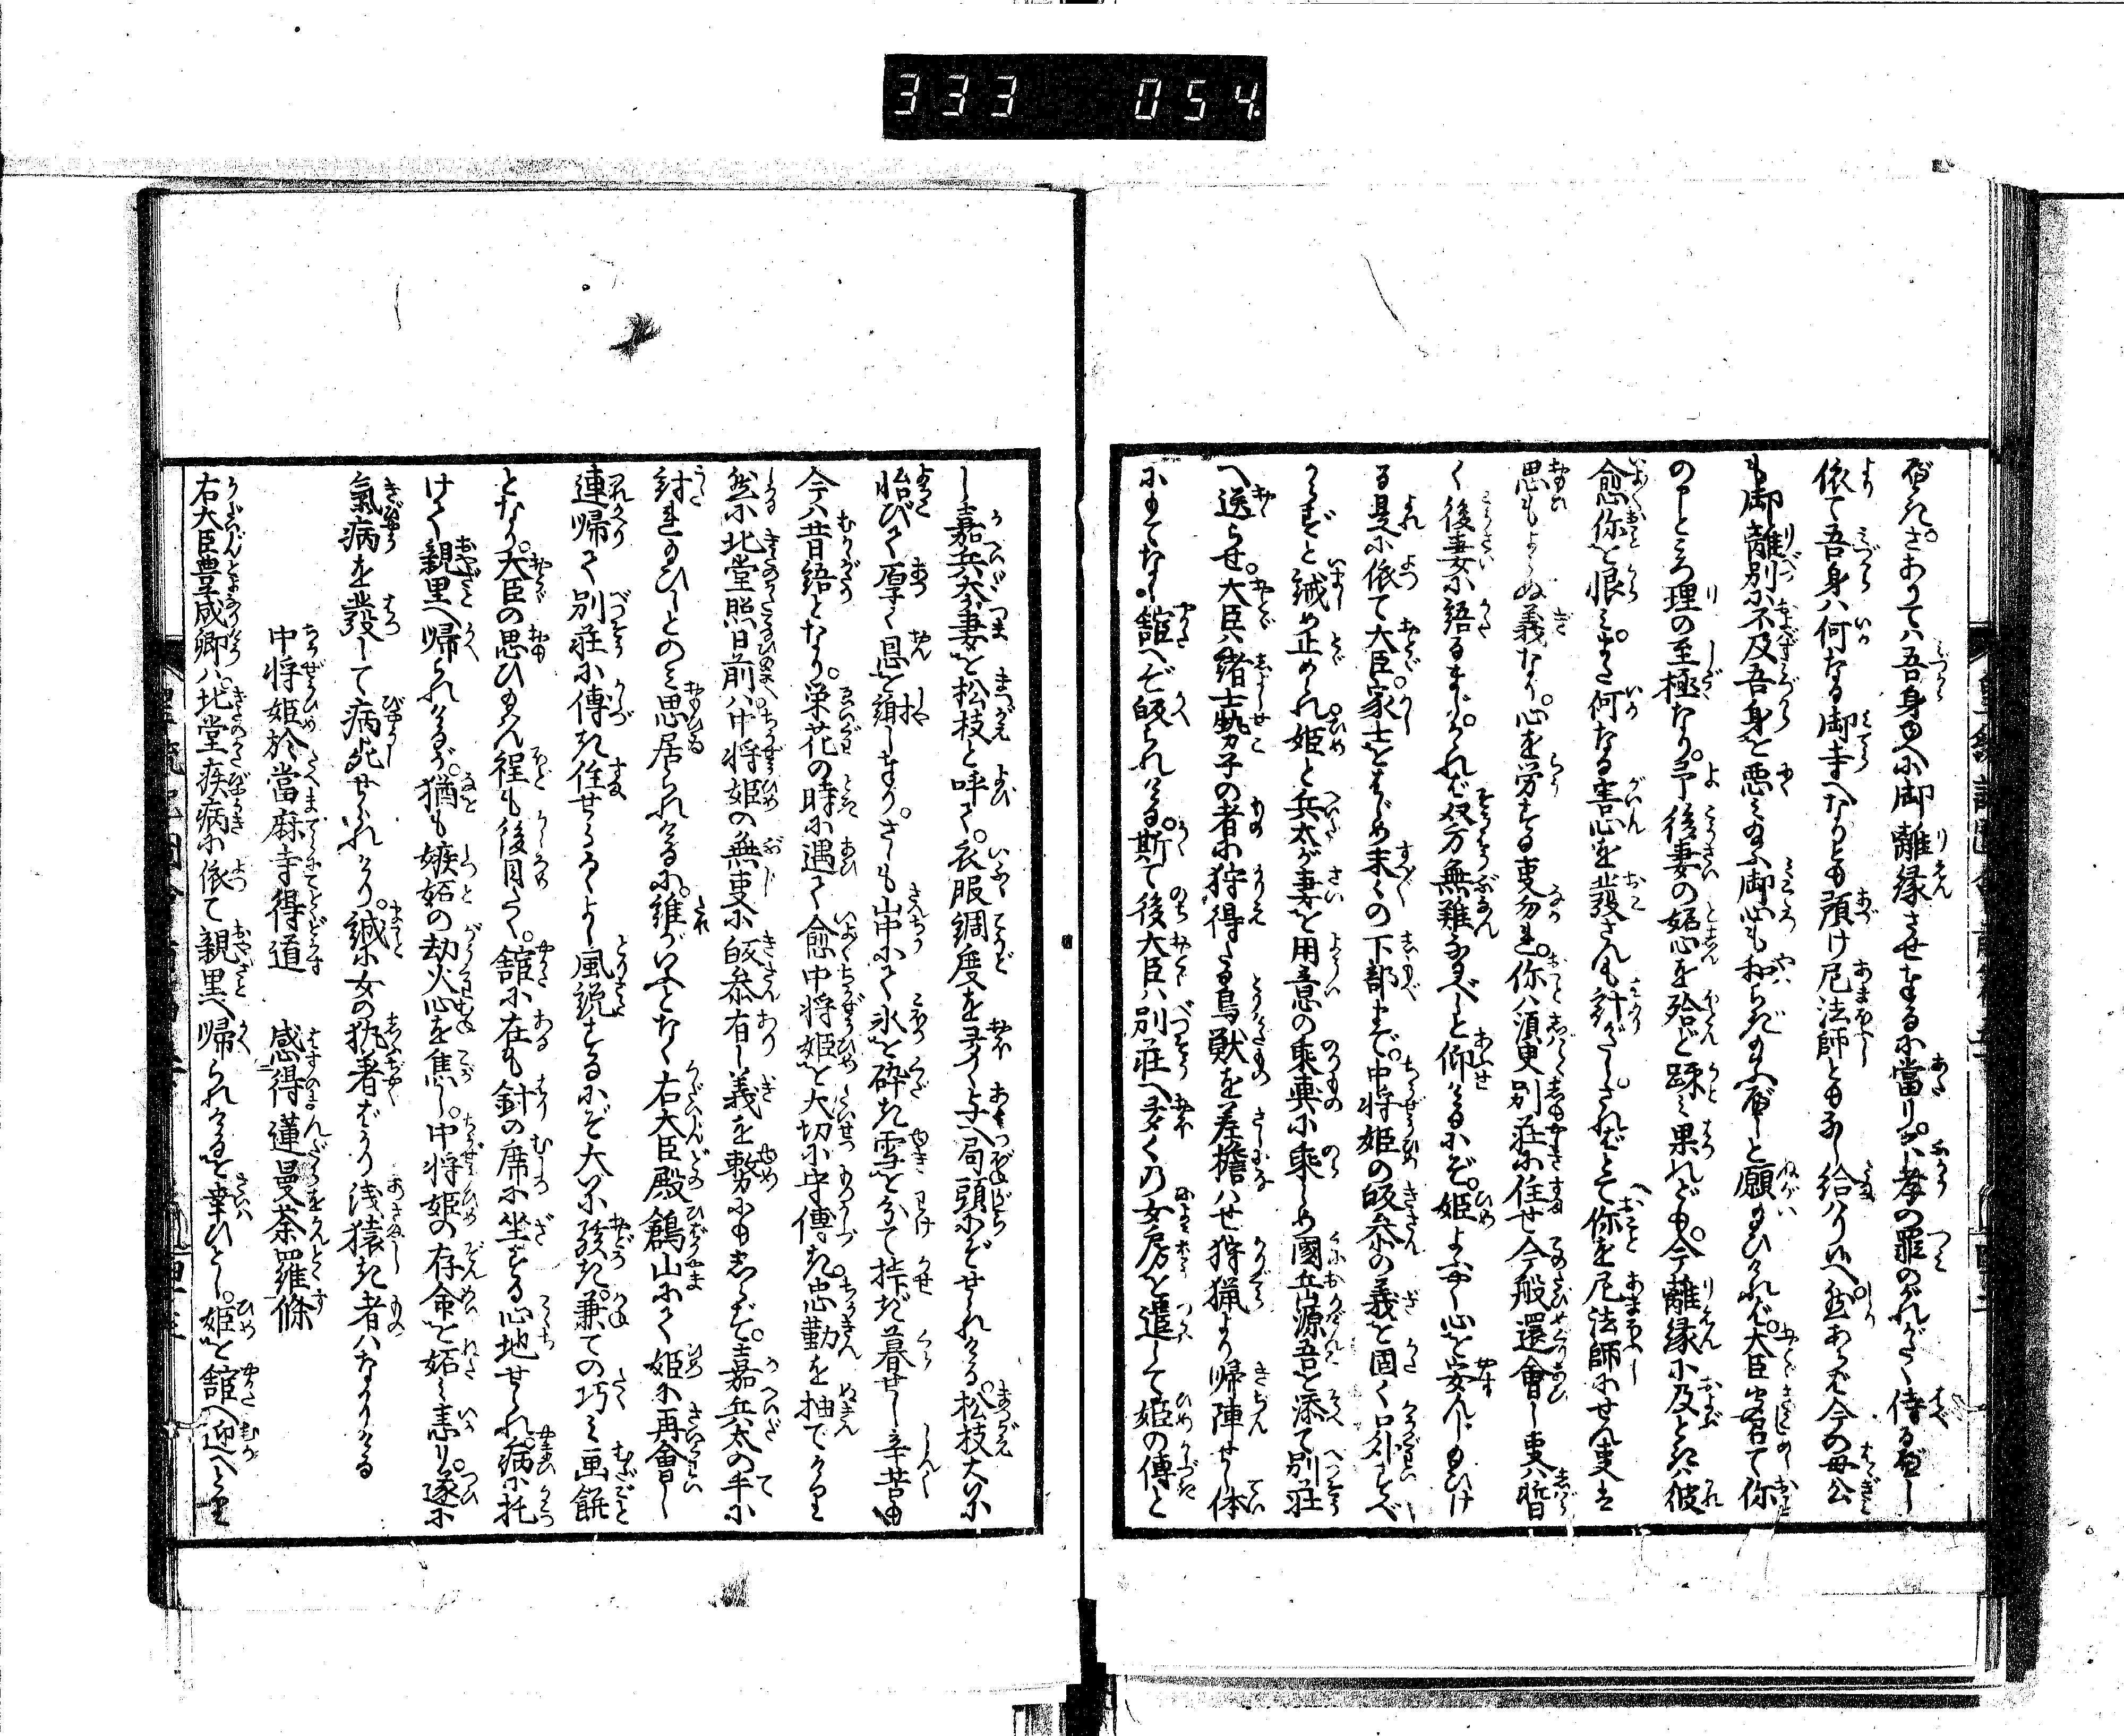 333 054.
べきさありては吾身ゆへに御離縁させまゐるに當り不孝の罪のがれがたく侍るべし
依て吾身は何なる御寺へなりとも預け尼法師ともなし給はり候へ然あらば今の母公
も御離別に不及吾身を悪み給ふ御心も和らぎ給ふべしと願ひければ大臣宣て你
のところ理の至極なり予後妻の妬心を殆ど疎み果れども今離縁に及ときは彼
愈你を恨みまた何なる害心を發さんも計がたしさればとて你を尼法師にせん事は
思もよらぬ義なり心を労する事勿れ你は須更別荘に住せ今般還會し事は暫
く後妻に語るまじければ双方無難なるべしと仰けるにぞ姫よふやく心を安んじ給ひけ
る是に依て大臣家士をはじめ末々の下部まで中将姫の皈参の義を固く口外すべ
からずと誡め止められ姫と兵太が妻を用意の乗輿に乗しめ國岳源吾を添て別荘
へ送らせ大臣は諸士勢子の者に狩得たる鳥獣を差擔はせ狩猟より帰陣せし体
にもてなし舘へぞ皈られける斯て後大臣は別荘へ多くの女房を遣して姫の傅と
し嘉兵太が妻を松枝と呼て衣服調度を多く与へ局頭にぞせられける松枝大に
怡びて厚く恩を謝しまゐらせさしも山中にて氷を砕き雪を分て拙き暮せし辛苦も
今は昔語となり栄花の時に遇て愈中将姫を大切に守傅き忠勤を抽でけり
然に北堂照日前は中将姫の無事に皈参有し義を夢にもしらず嘉兵太の手に
討れ給ひしとのみ思居られけるに誰がいふとなく右大臣殿鶬山にて姫に再會し
連帰て別荘に傅き住せらるゝよし風説するにぞ大に駭き兼ての巧み画餅
となり大臣の思ひ給はん程も後目たく舘に在も針の席に坐する心地せられ病に托
けて親里へ帰られけるが猶も嫉妬の劫火心を焦し中将姫の存命を妬み恚り遂に
氣病を發して病死せられけり誠に女の執着ばかり浅猿き者はなかりける
中将姫於當麻寺得道　感得蓮曼荼羅條
右大臣豊成卿は北堂疾病に依て親里へ帰られけるを幸ひとし姫を舘へ迎へとり